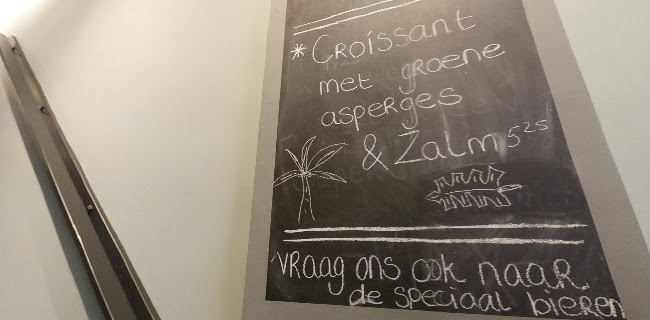 * Croissant
met groene
asperges
& Zalm 5 25
vraag ons ook naar
de speciaal bieren